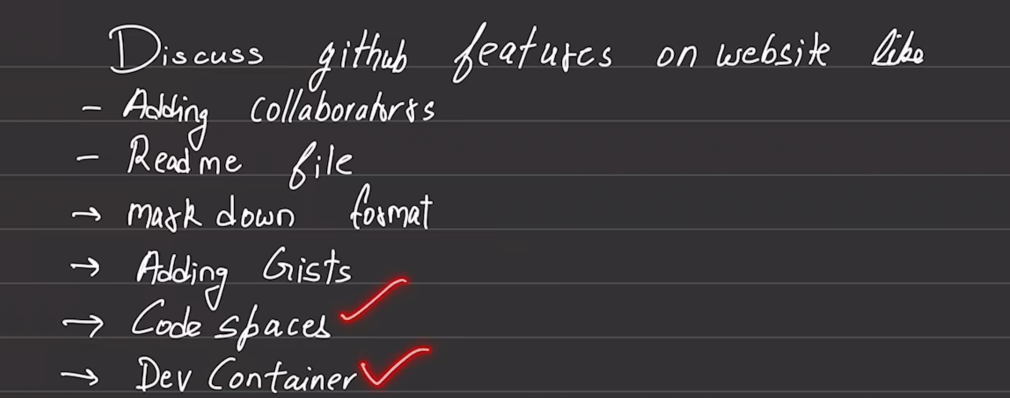 Discuss github features on website like
- Adding collaborators
- Readme file
→ mark down format
→ Adding Gists
→ Code spaces
→ Dev Container